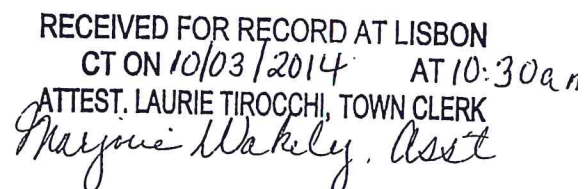 RECEIVED FOR RECORD AT LISBON
CT ON 10/03/2014 AT 10:30am
ATTEST. LAURIE TIROCCHI, TOWN CLERK
Marjorie Wakely, Asst